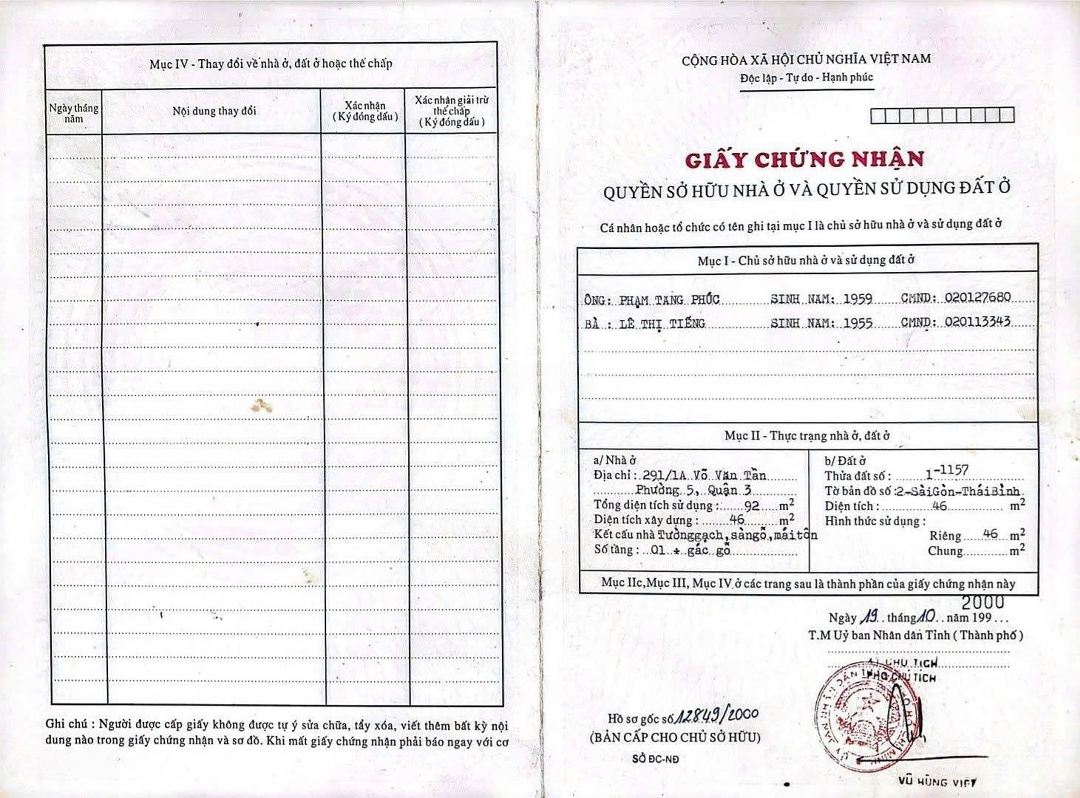 Mục IV - Thay đổi về nhà ở, đất ở hoặc thế chấp
Ngày tháng năm
Nội dung thay đổi
Xác nhận
( Ký đóng dấu )
Xác nhận giải trừ
thế chấp
( Ký đóng dấu )
Ghi chú : Người được cấp giấy không được tự ý sửa chữa, tẩy xóa, viết thêm bất kỳ nội
dung nào trong giấy chứng nhận và sơ đồ. Khi mất giấy chứng nhận phải báo ngay với cơ
CỘNG HÒA XÃ HỘI CHỦ NGHĨA VIỆT NAM
Độc lập - Tự do - Hạnh phúc
GIẤY CHỨNG NHẬN
QUYỀN SỞ HỮU NHÀ Ở VÀ QUYỀN SỬ DỤNG ĐẤT Ở
Cá nhân hoặc tổ chức có tên ghi tại mục I là chủ sở hữu nhà ở và sử dụng đất ở
Mục I - Chủ sở hữu nhà ở và sử dụng đất ở
ÔNG: PHẠM TANG PHÚC SINH NAM: 1959 CMND: 020127680
BÀ : LÊ THỊ TIẾNG SINH NAM: 1955 CMND: 020113343
Mục II - Thực trạng nhà ở, đất ở
a/ Nhà ở
Địa chỉ : 291/1A Võ Văn Tần
Phường 5, Quận 3
Tổng diện tích sử dụng : 92 m2
Diện tích xây dựng : 46 m2
Kết cấu nhà Tườnggạch,sàngỗ,máitôn
Số tầng : 01 + gác gỗ
b/ Đất ở
Thửa đất số : 1-1157
Tờ bản đồ số :2-SàiGòn-TháiBình
Diện tích : 46 m2
Hình thức sử dụng :
Riêng 46 m2
Chung m2
Mục IIc,Mục III, Mục IV ở các trang sau là thành phần của giấy chứng nhận này
2000
Ngày 19 tháng 10 năm 199
T.M Uỷ ban Nhân dân Tỉnh ( Thành phố )
CHỦ TỊCH
PHÓ CHỦ TỊCH
Hồ sơ gốc số 12849/2000
(BẢN CẤP CHO CHỦ SỞ HỮU)
SỞ ĐC-NĐ
VŨ HÙNG VIỆT